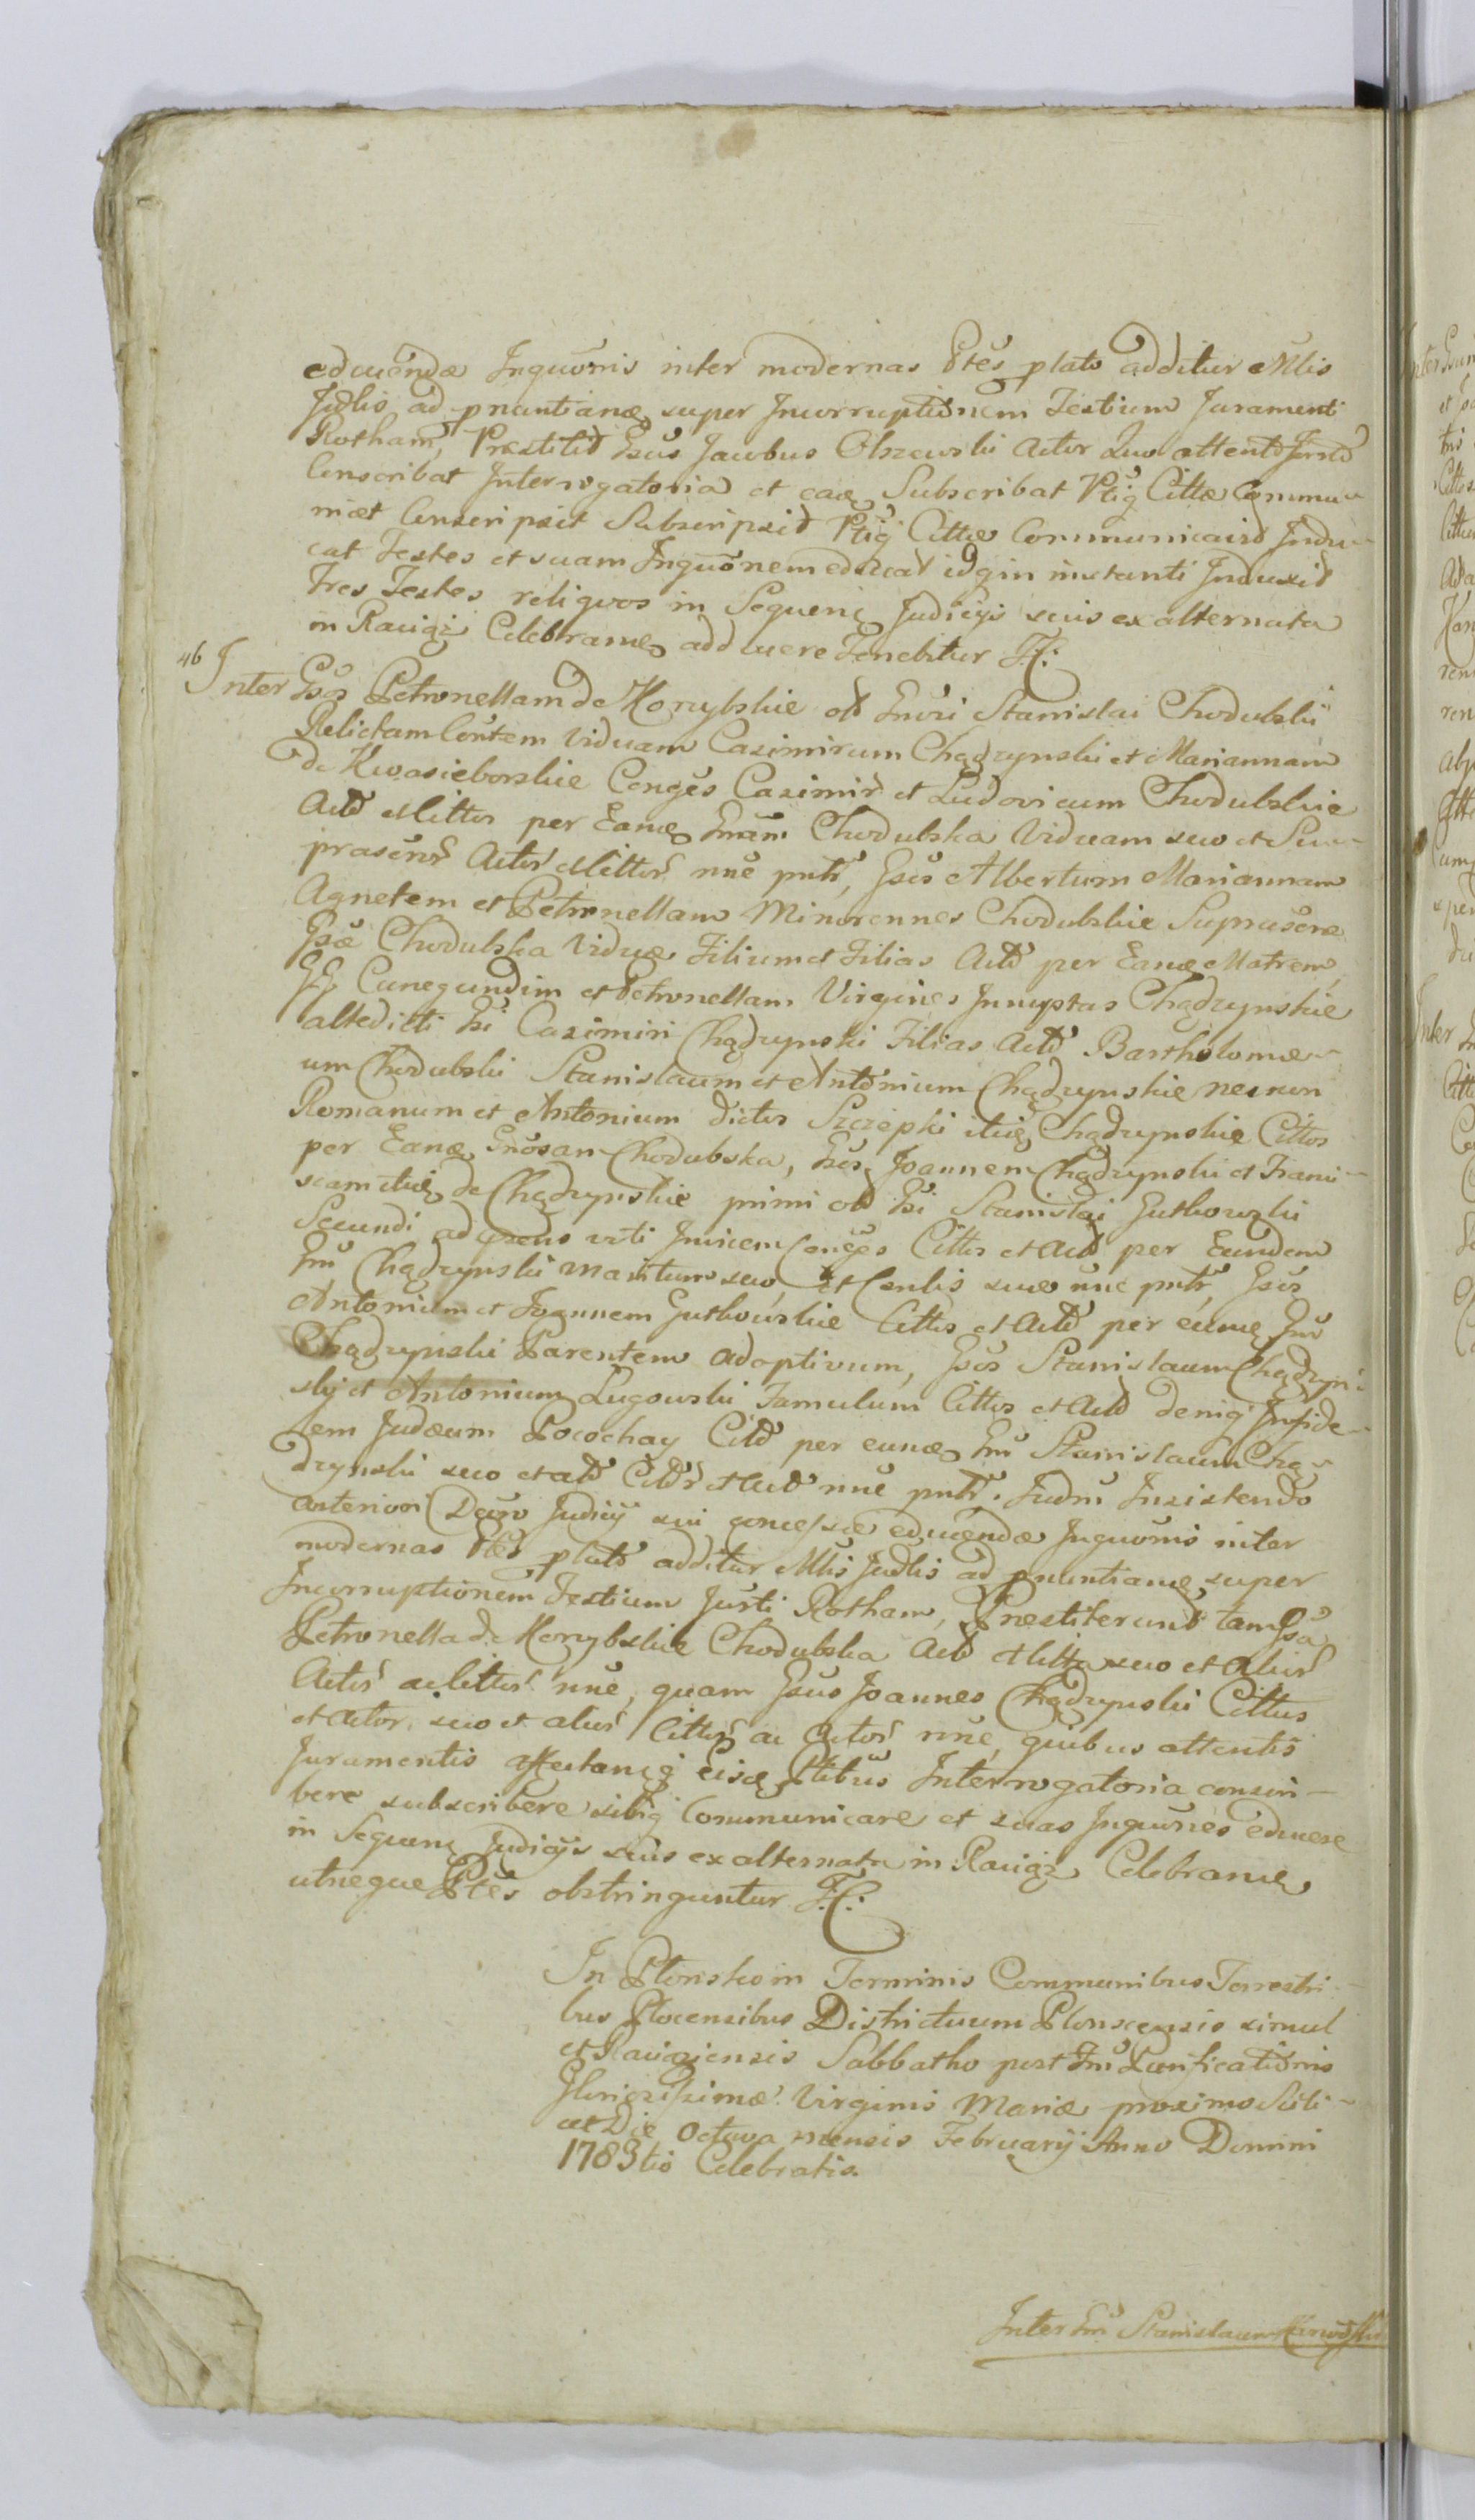 educendæ Inquõnis inter modernas Ptes plato additur Mtis
Jltis ad pnuntianæ super Incorruptiõnem Testium Juramenti
Rotham, Præstitit Gsus Jacobus Olszewski Actor Quo attento Jurto
Conscribat Interrogatoria et eaq Subscribat Ptiq Cittæ Commu-
nicet Conscripsit Subscripsit Ptiq Cittæ Communicavit Indu-
cat Testes et suam Inquõnem educat idq in instanti Induxit
Tres Testes reliquos in Sequenç Judicijs suis ex alternata
in Raciąż Celebranç adducere Tenebitur H:
46 Inter Gsos Petronellam de Korzybskie olt Gnosi Stanislai Chodubski
Relictam Contem Viduam Casimirum Chądzynski et Mariannam
de Kwasieborskie Conges Casimir et Ludovicum Chodubskie
Act et Cittos per Eanç Gnam Chodubska Viduam suo et Su-
prasenor Actor et Cittor nne pntr, Gsos Albertum Mariannam
Agnetem et Petronellam Minorennes Chodubskie Suprasenæ
Gsæ Chodubska Viduæ Filium et Filias Act per Eanç Matrem,
GG Cunegundim et Petronellam Virgines Innuptas Chądzynskie
altedicti Gsi Casimiri Chądzynski Filias Act Bartholomæ-
um Chodubski Stanislaum et Antonium Chądzynskie necnon
Romanum et Antonium dictos Szczepki itiç Chądzynskie Cittos
per Eanç Gnosam Chodubska, Gsos Joannem Chądzynski et Franci-
scam itiç de Chądzynskie primi olt Gsi Stanislai Gutkowski
Secundi ad præns voti Invicem Conges Cittos et Act per Eundem
Gnu Chądzynski maritum suo, et Contis suæ nne pntr, Gsos
Antonium et Joannem Gutkowskie Cittos et Act per eunç Gnu
Chądzynski Parentem adoptivum, Gsos Stanislaum Chądzyn-
skj et Antonium Lugowski Famulum Cittos et Act deniq Infide-
lem Judæum Pocochay Citt per eunç Gnu Stanislaum Chą-
dzynski suo et alt Cittor et Act nne pntr. Judm Insistendo
anteriori Decro Judicij sui concessæ educendæ Inquõnis inter
modernas Ptes plato additur Mtis Judtis ad pnuntianç super
Incorruptionem Testium Jurti Rotham, Præstiterunt tam Gsa
Petronella de Korzybskie Chodubska Act et Citta suo et alior
Actor ac Cittor nne, quam Gsus Joannes Chądzynski Cittus
et Actor suo et alior Cittor ac Actor nne, quibus attentis
Juramentis affectanç eisç Ptibus Interrogatoria conscri-
bere subscribere sibiq Communicare et suas Inquones educere
in Sequenç Judicijs suis ex alternata in Raciąż Celebranç
utreque Ptes obstringuntur H:
In Plonsko in Terminis Communibus Terrestri-
bus Plocensibus Districtuum Plonscensis simul
et Raciązensis Sabbatho post Fm Purificationis
Gloriosissimæ Virginis Mariæ proximo Scili-
cet Die Octava mensis Februarij Anno Domini
1783tio Celebratis.
Inter Gnu Stanislaum